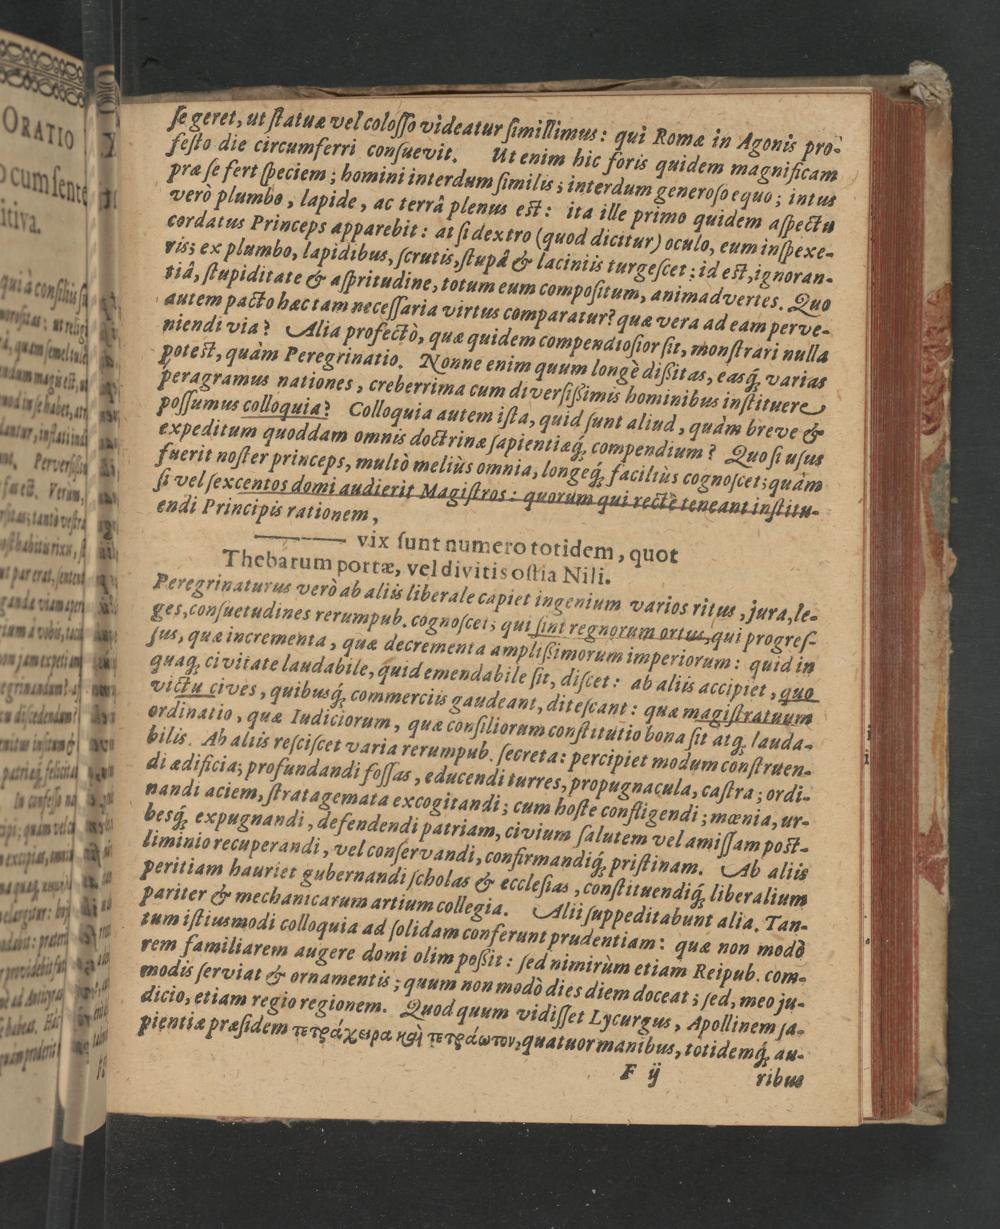 ORATIO
ocum sente
itiva.
ſe geret, ut ſtatuæ vel coloſſo videatur ſimillimus: qui Romæ in Agonis pro-
feſto die circumferri conſuevit. Ut enim hic foris quidem magnificam
præ ſe fert ſpeciem; homini interdum ſimilis; interdum generoſo equo; intus
verò plumbo, lapide, ac terrâ plenus eſt: ita ille primo quidem aſpectu
cordatus Princeps apparebit: at ſi dextro (quod dicitur) oculo, eum inſpexe-
ris; ex plumbo, lapidibus, ſcrutis, ſtupâ & laciniis turgeſcet: id eſt, ignoran-
tiâ, ſtupiditate & aſpritudine, totum eum compoſitum, animadvertes. Quo
autem pacto hæc tam neceſſaria virtus comparatur? quæ vera ad eam perve-
niendi via? Alia profectò, quæ quidem compendioſior ſit, monſtrari nulla
poteſt, quàm Peregrinatio. Nonne enim quum longè diſsitas, easq́, varias
peragramus nationes, creberrima cum diverſiſsimis hominibus inſtituere
poſſumus colloquia? Colloquia autem iſta, quid ſunt aliud, quàm breve &
expeditum quoddam omnis doctrinæ ſapientiæq́, compendium? Quo ſi uſus
fuerit noſter princeps, multò meliùs omnia, longeq́, faciliùs cognoſcet; quàm
ſi vel ſexcentos domi audierit Magiſtros: quorum qui rectè teneant inſtitu-
endi Principis rationem,
——— vix ſunt numero totidem, quot
Thebarum portæ, vel divitis oſtia Nili.
Peregrinaturus verò ab aliis liberale capiet ingenium varios ritus, jura, le-
ges, conſuetudines rerumpub. cognoſcet; qui ſint regnorum ortus, qui progreſ-
ſus, quæ incrementa, quæ decrementa ampliſsimorum imperiorum: quid in
quaq, civitate laudabile, quid emendabile ſit, diſcet: ab aliis accipiet, quo
victu cives, quibusq́, commerciis gaudeant, diteſcant: quæ magiſtratuum
ordinatio, quæ Iudiciorum, quæ conſiliorum conſtitutio bona ſit atq, lauda-
bilis. Ab aliis reſciſcet varia rerumpub. ſecreta: percipiet modum conſtruen-
di ædificia; profundandi foſſas, educendi turres, propugnacula, caſtra; ordi-
nandi aciem, ſtratagemata excogitandi; cum hoſte confligendi; mœnia, ur-
besq́, expugnandi, defendendi patriam, civium ſalutem vel amiſſam poſt-
liminio recuperandi, vel conſervandi, confirmandiq́, priſtinam. Ab aliis
peritiam hauriet gubernandi ſcholas & eccleſias, conſtituendiq́, liberalium
pariter & mechanicarum artium collegia. Alii ſuppeditabunt alia. Tan-
tum iſtiusmodi colloquia ad ſolidam conferunt prudentiam: quæ non modò
rem familiarem augere domi olim poſsit: ſed nimirùm etiam Reipub. com-
modis ſerviat & ornamentis; quum non modò dies diem doceat; ſed, meo ju-
dicio, etiam regio regionem. Quod quum vidiſſet Lycurgus, Apollinem ſa-
pientiæ præſidem τετράχειρα καὶ τετράωτον, quatuor manibus, totidemq́, au-
F ij ribus